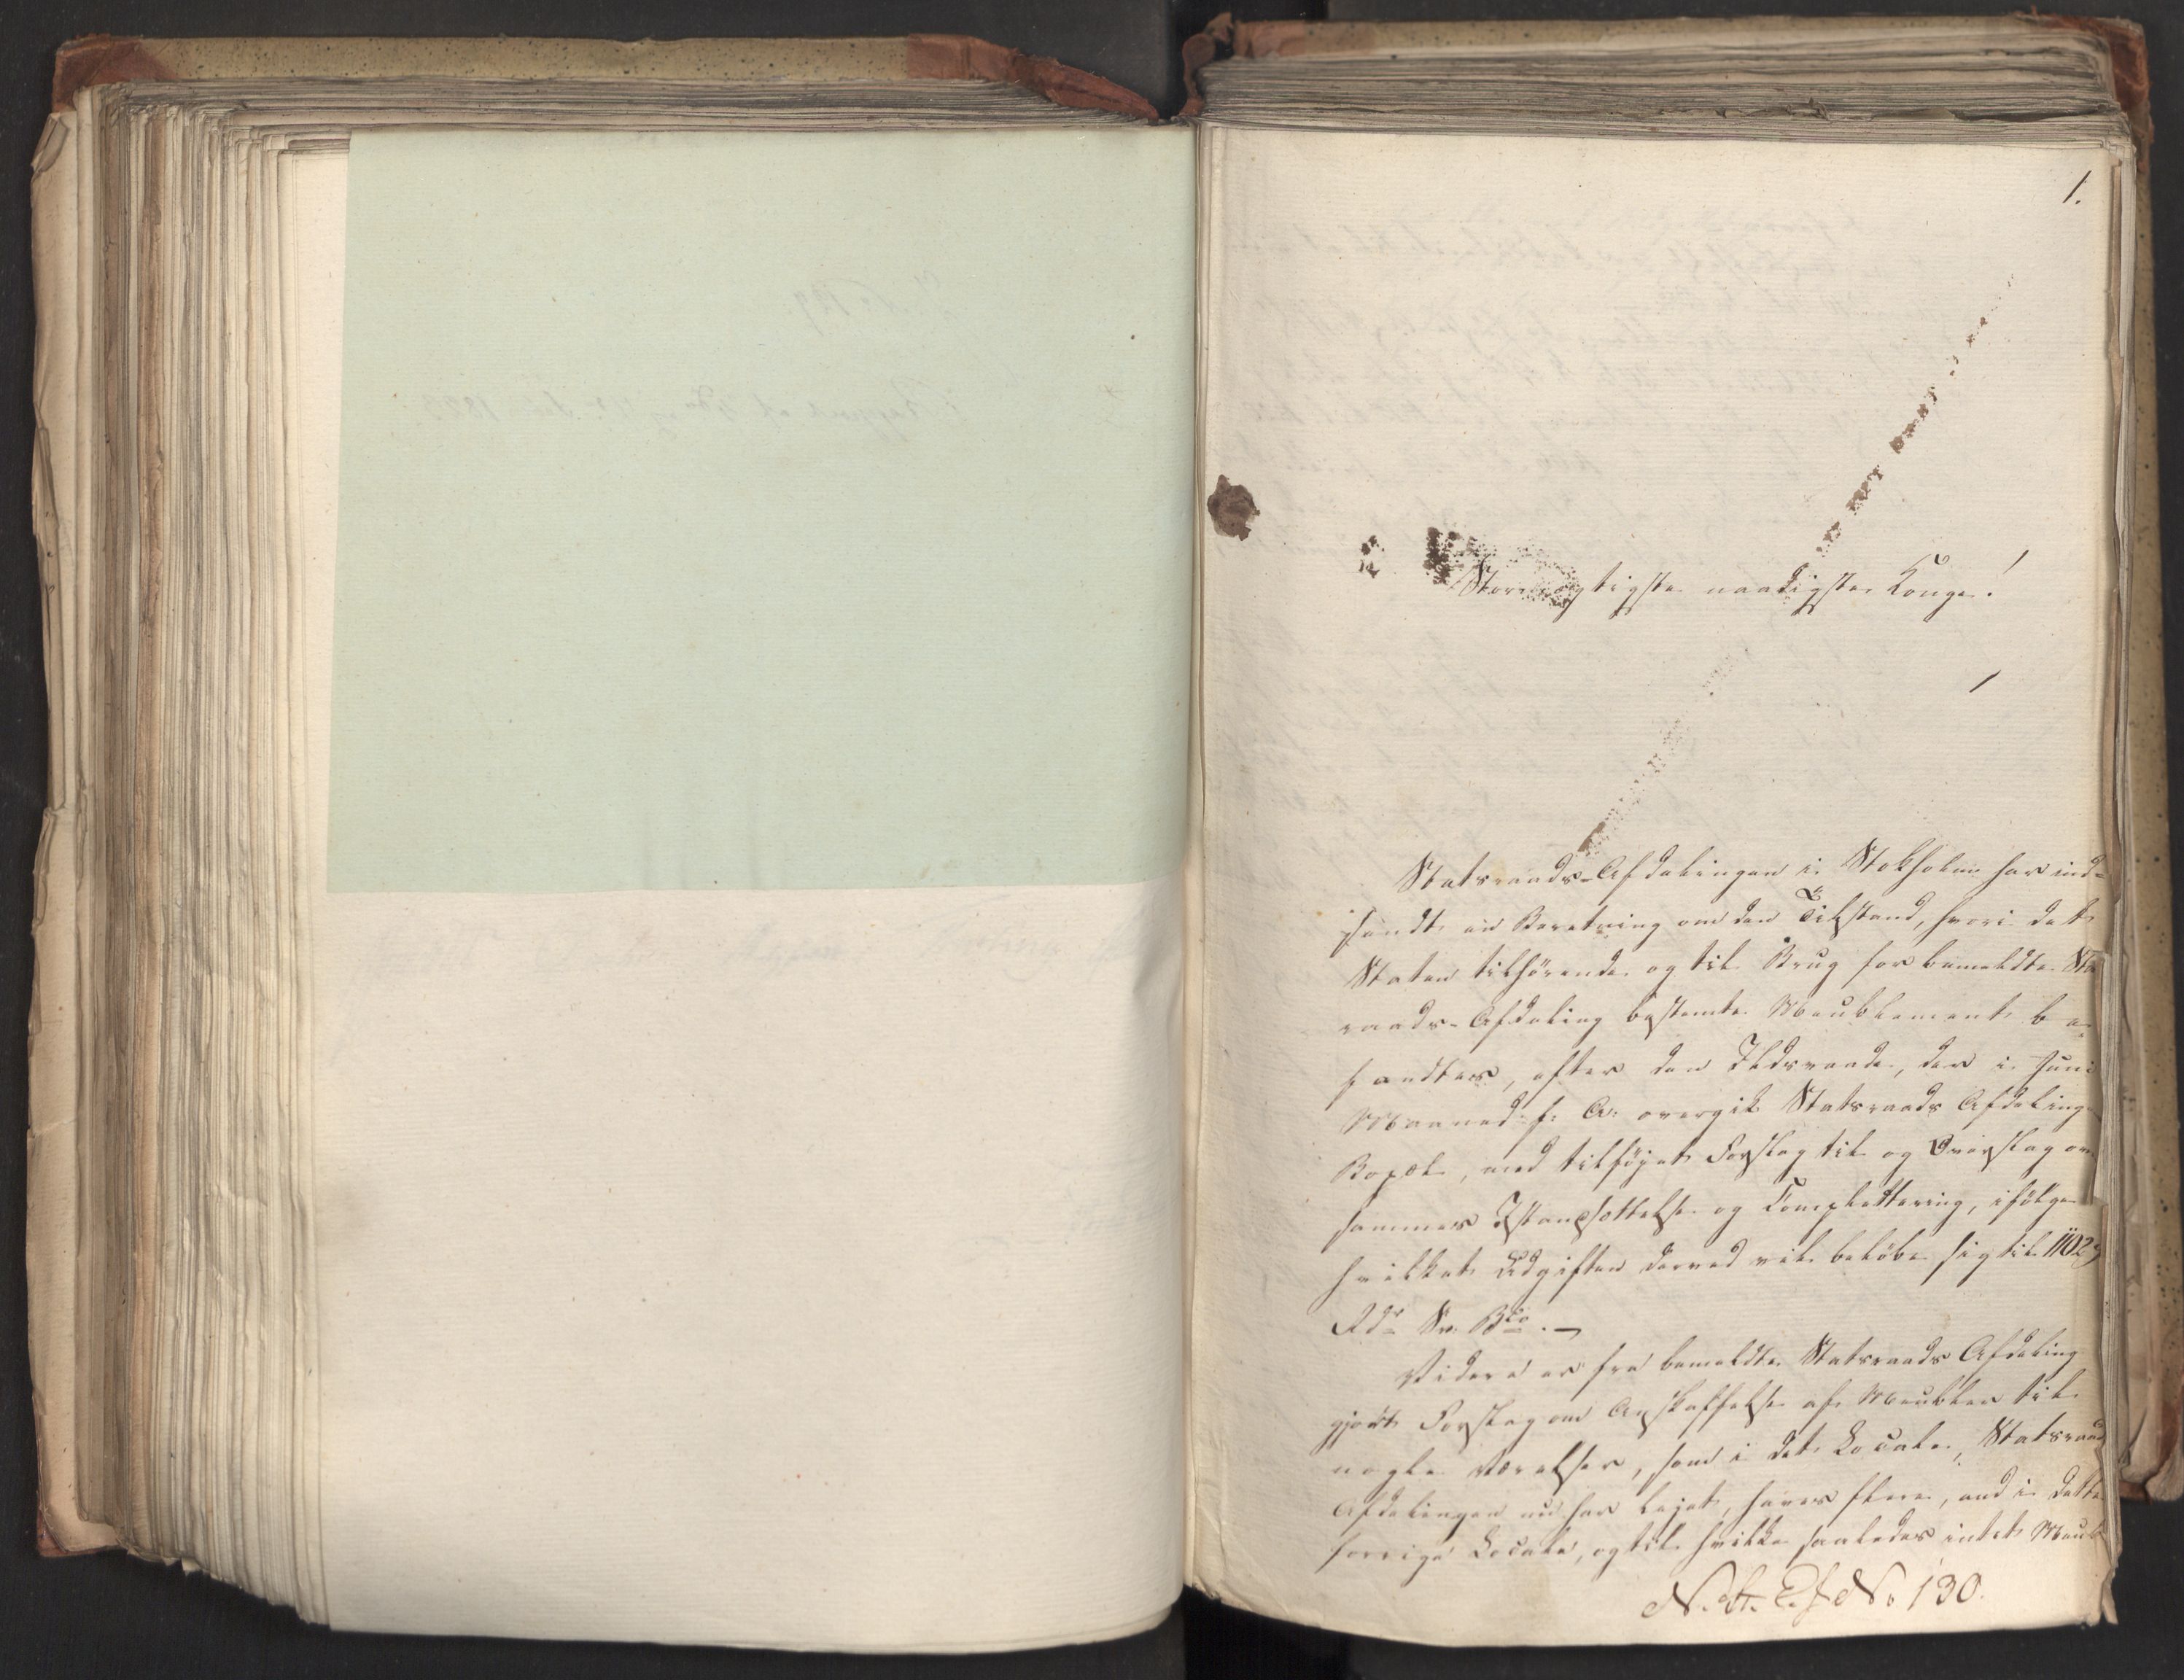 1.
Stormægtigste naadigste Konge!
Statsraads-Afdelingen i Stokholm har ind-
sendt en Beretning om den Tilstand, hvori det
Staten tilhørende og til Brug for bemeldte Sta
raads-Afdeling bestemte Meublement be-
fandtes, efter den Ildsvaade, der i Juni
Maaned f: A: overgik Statsraads Afdeling
Bopæl, med tilføjet Forslag til og Overslag om
sammes Istandsættelse og Complettering, ifølge
hvilket Udgiften derved vil beløbe sig til 1102
Rdr Sv. Bco. —
Videre er fra bemeldte Statsraads Afdeling
gjort Forslag om Anskaffelse af Meubler til
nogle Værelser, som i det Locale, Statsraad
Afdelingen nu har lejet, haves flere, end i dette
forrige Locale, og til hvilke saaledes intet Meub
No 130.